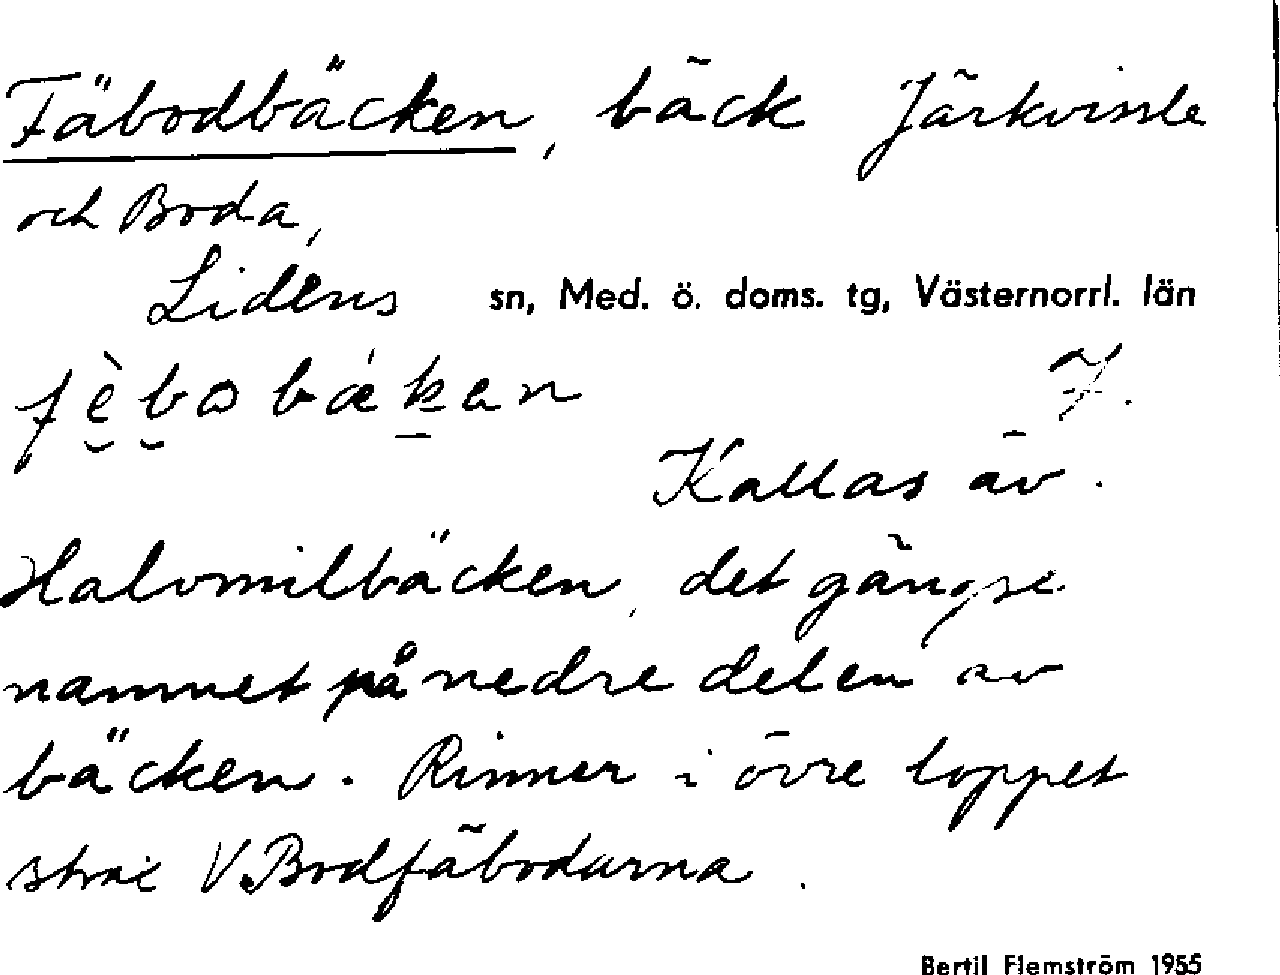 Fäbodbäcken, bäck Järkvissle
och Boda,
Lidens sn, Med. ö. doms. tg, Västernorrl. län
Kallas äv.
Halvmilbäcken, det gängse
namnet på nedre delen av
bäcken. Rinner i övre loppet
strax V. Bodfäbodarna.
Bertil Flemström 1955